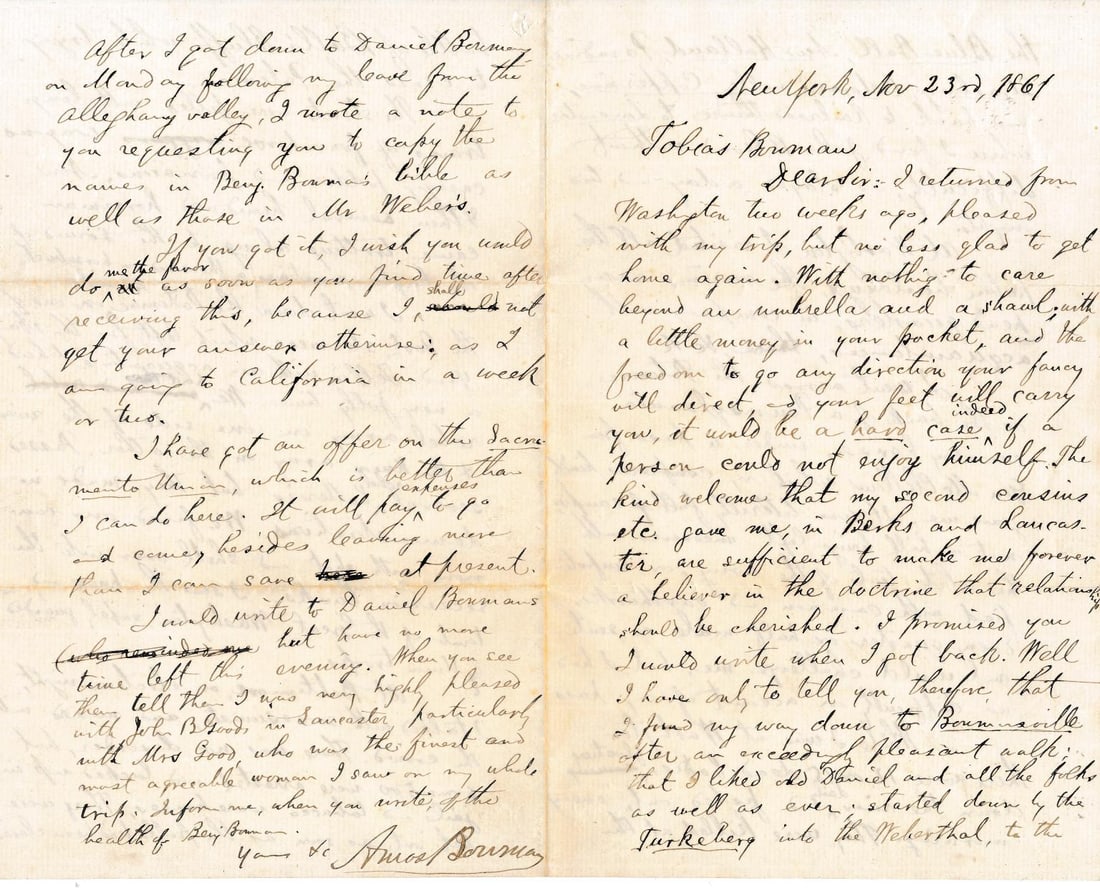 New York, Nov 23rd, 1861
Tobias Bowman
Dear Sir:- I returned from
Washgton two weeks ago, pleased
with my trip, but no less glad to get
home again. With nothing to care
beyond an umbrella and a shawl, with
a little money in your pocket, and the
freedom to go any direction your fancy
will direct, and your feet will carry
you, it would be a hard case indeed if a
person could not enjoy himself. The
kind welcome that my second cousins
etc. gave me, in Berks and Lancas-
ter, are sufficient to make me forever
a believer in the doctrine that relationship
should be cherished. I promised you
I would write when I got back. Well
I have only to tell you, therefore, that
I found my way down to Bowmansville
after an exceedingly pleasant walk;
that I liked old Daniel and all the folks
as well as ever; started down by the
Turkeberg into the Weberthal, to the
After I got down to Daniel Bowmans
on Monday following my leave from the
Alleghany valley, I wrote a note to
you requesting you to copy the
names in Benj. Bowma's bible as
well as those in Mr Weber's.
If you got it, I wish you would
do me the favor as soon as you find time after
receiving this, because I shall not
get your answer otherwise; as I
am going to California in a week
or two.
I have got an offer on the Sacra-
mento Union, which is better than
I can do here. It will pay expenses to go
and come, besides leaving more
than I can save at present.
I would write to Daniel Bowmans
(who reminded me but have no more
time left this evening. When you see
them tell them I was very highly pleased
with John B Goods in Lancaster, particularly
with Mrs Good, who was the finest and
most agreeable woman I saw on my whole
trip. Inform me, when you write, of the
health of Benj Bowman.
Yours &c Amos Bowman